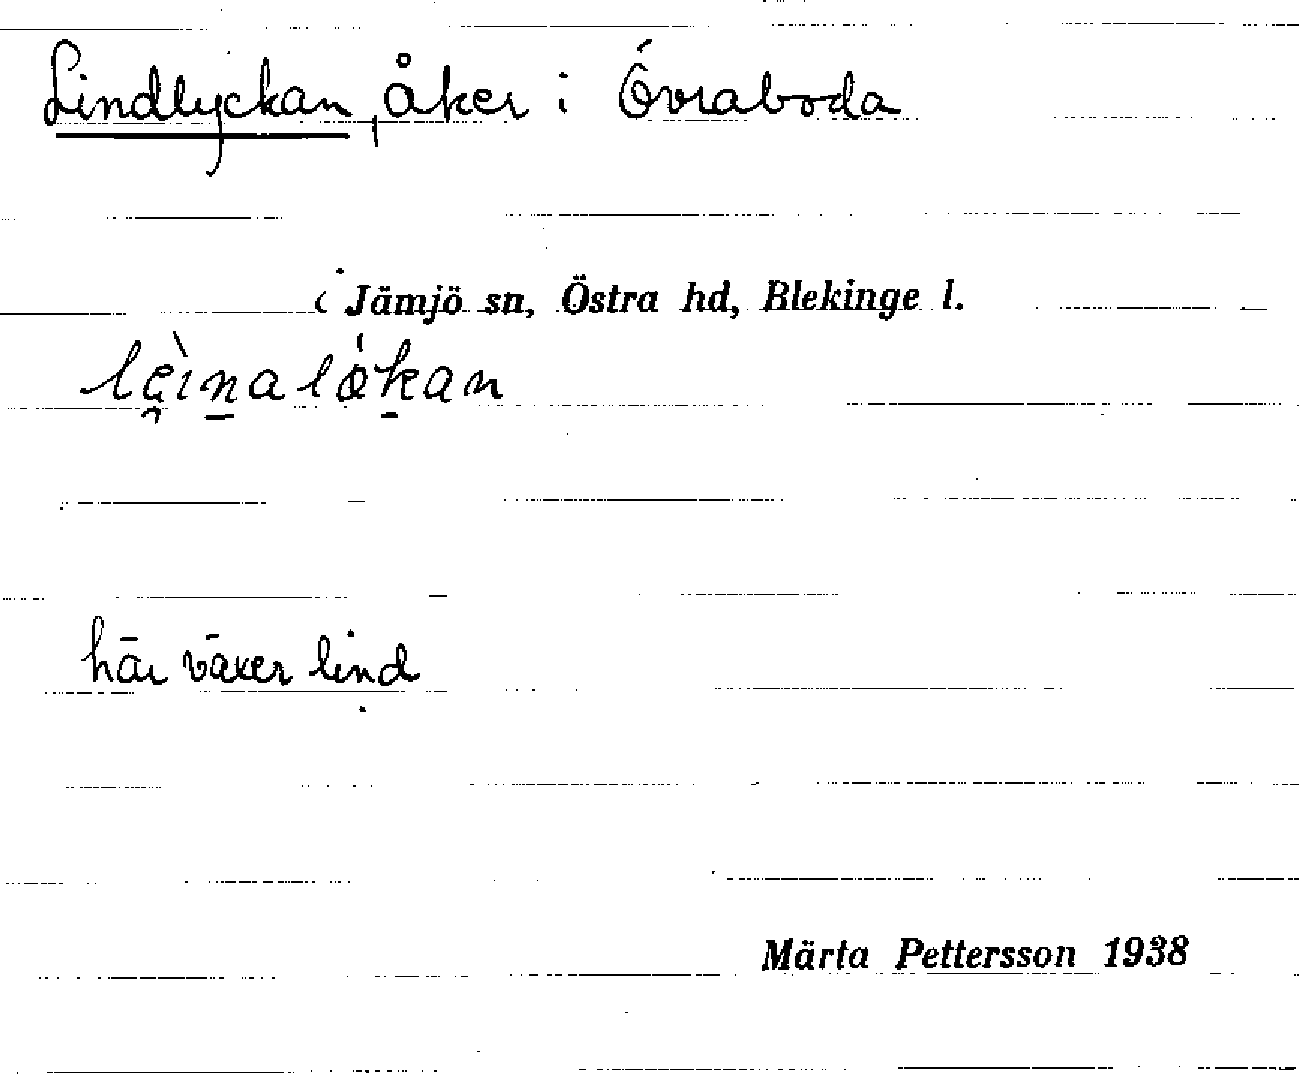 Lindlyckan, åker i Övraboda
i Jämjö sn, Östra hd, Blekinge l.
lęìnalökan
här växer lind
Märta Pettersson 1938